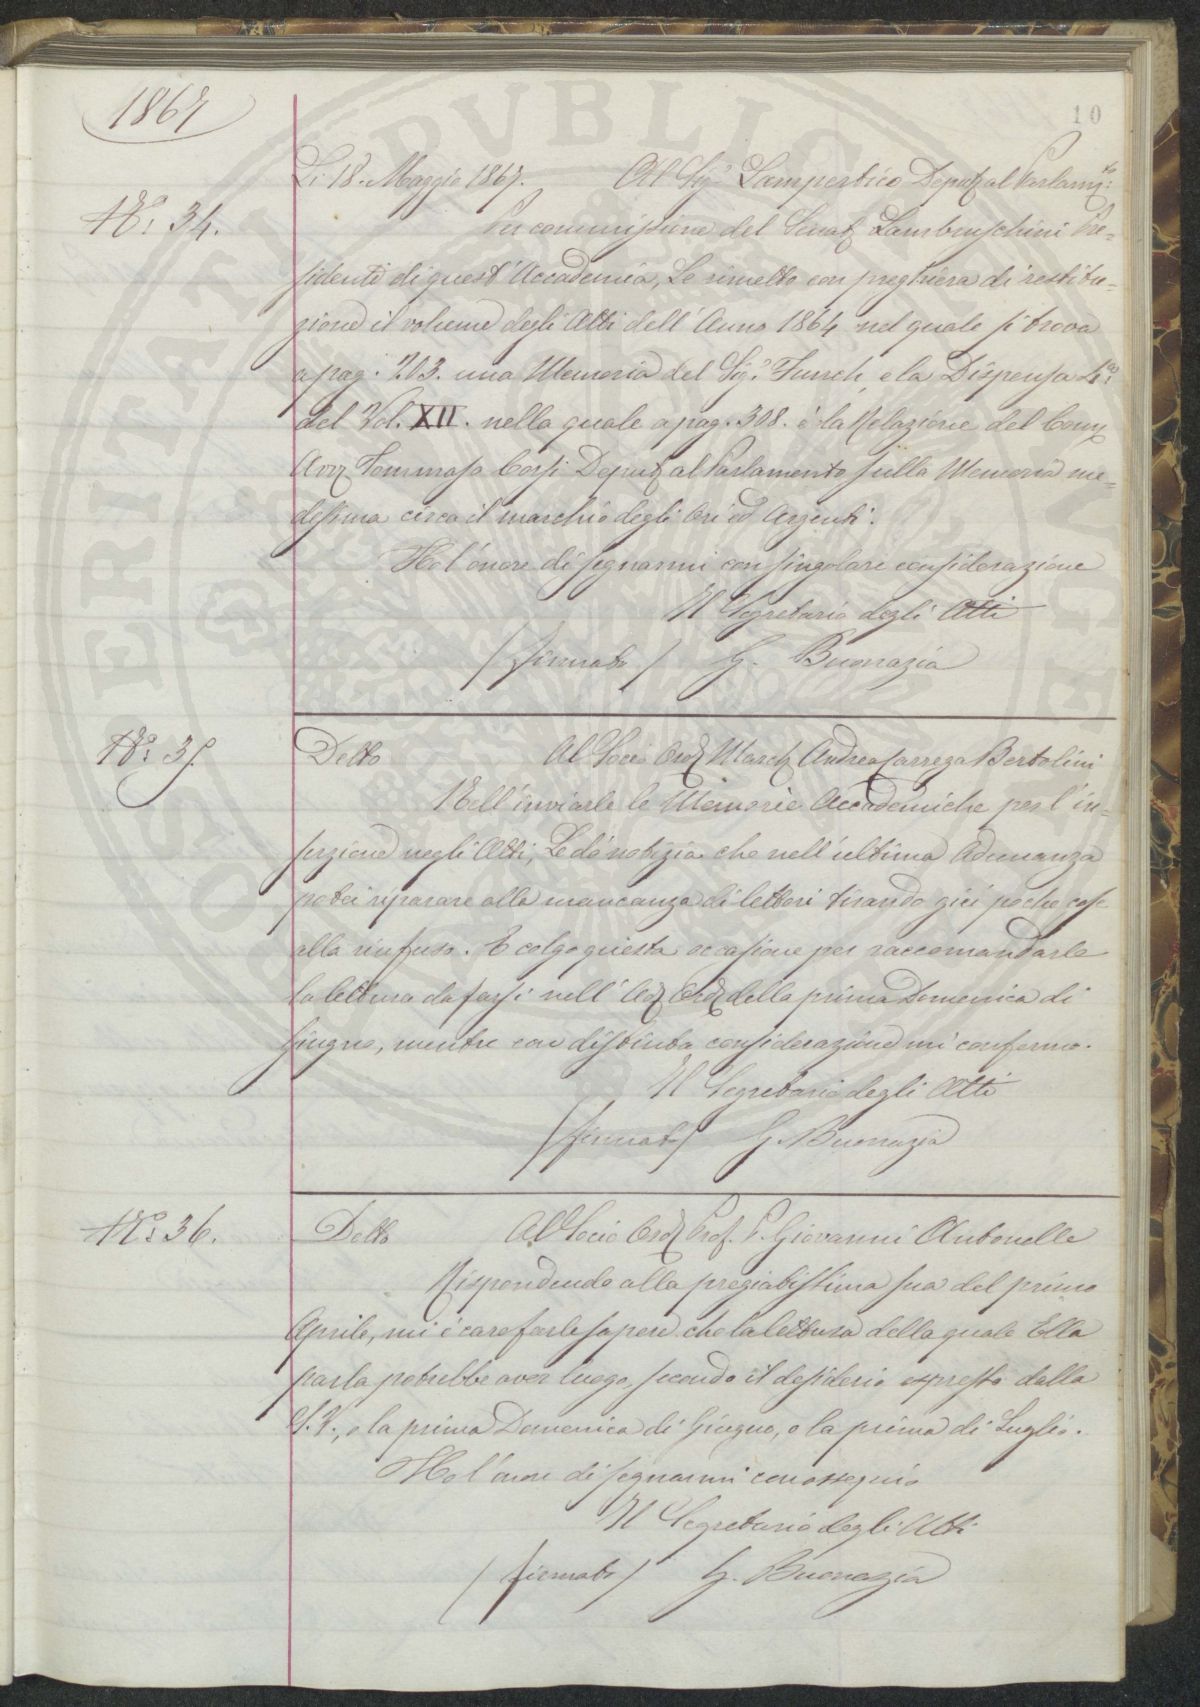 1867
10
Li 18. Maggio 1867. Al Sig.r Lampertico Deput. al Parlam.to
N.o 34. Per commissione del Senat. Lambruschini Pre=
sidente di quest'Accademia, Le rimetto con preghiera di restitu=
zione il volume degli Atti dell'Anno 1864 nel quale si trova
a pag. 203. una Memoria del Sig.r , e la Dispensa 4.a
del Vol. XII. nella quale a pag. 308. è la Relazione del Comm.
Avv. Tommaso Corsi Deput. al Parlamento sulla Memoria me=
desima circa il marchio degli Ori ed Argenti.
Ho l'onore di segnarmi con singolare considerazione
Il Segretario degli Atti
/ firmato / G. Buonazia
N.o 35. Detto Al Socio Ord. March. Andrea Carrega Bertolini
Nell'inviarle le Memorie Accademiche per l'in=
serzione negli Atti, Le dò notizia che nell'ultima Adunanza
potei riparare alla mancanza di lettori tirando giù poche cose
alla rinfusa. E colgo questa occasione per raccomandarle
la lettura da farsi nell'Ad. Ord. della prima Domenica di
Giugno, mentre con distinta considerazione mi confermo.
Il Segretario degli Atti
/ firmato / G. Buonazia
N.o 36. Detto Al Socio Ord. Prof. P. Giovanni Antonelli
Rispondendo alla pregiatissima sua del primo
Aprile, mi è caro farle sapere che la lettura della quale Ella
parla potrebbe aver luogo, secondo il desiderio espresso dalla
S.V., o la prima Domenica di Giugno, o la prima di Luglio.
Ho l'onore di segnarmi con ossequio
Il Segretario degli Atti
/ firmato / G. Buonazia